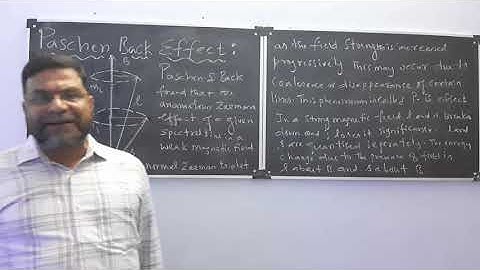 Paschen Back Effect:
B
l
Paschen & Back
found that the
anomalous Zeeman
effect of a given
spectral line in a
weak magnetic field
normal Zeeman triplet
as the field strength is increased
progressively. This may occur due to
or disappearance of certain
lines. This phenomenon is called P.B effect
In a strong magnetic field l and s
down and j loses it significance. l and
s are quantised seperately. The energy
change due to the presence of field is
l about B and s about B